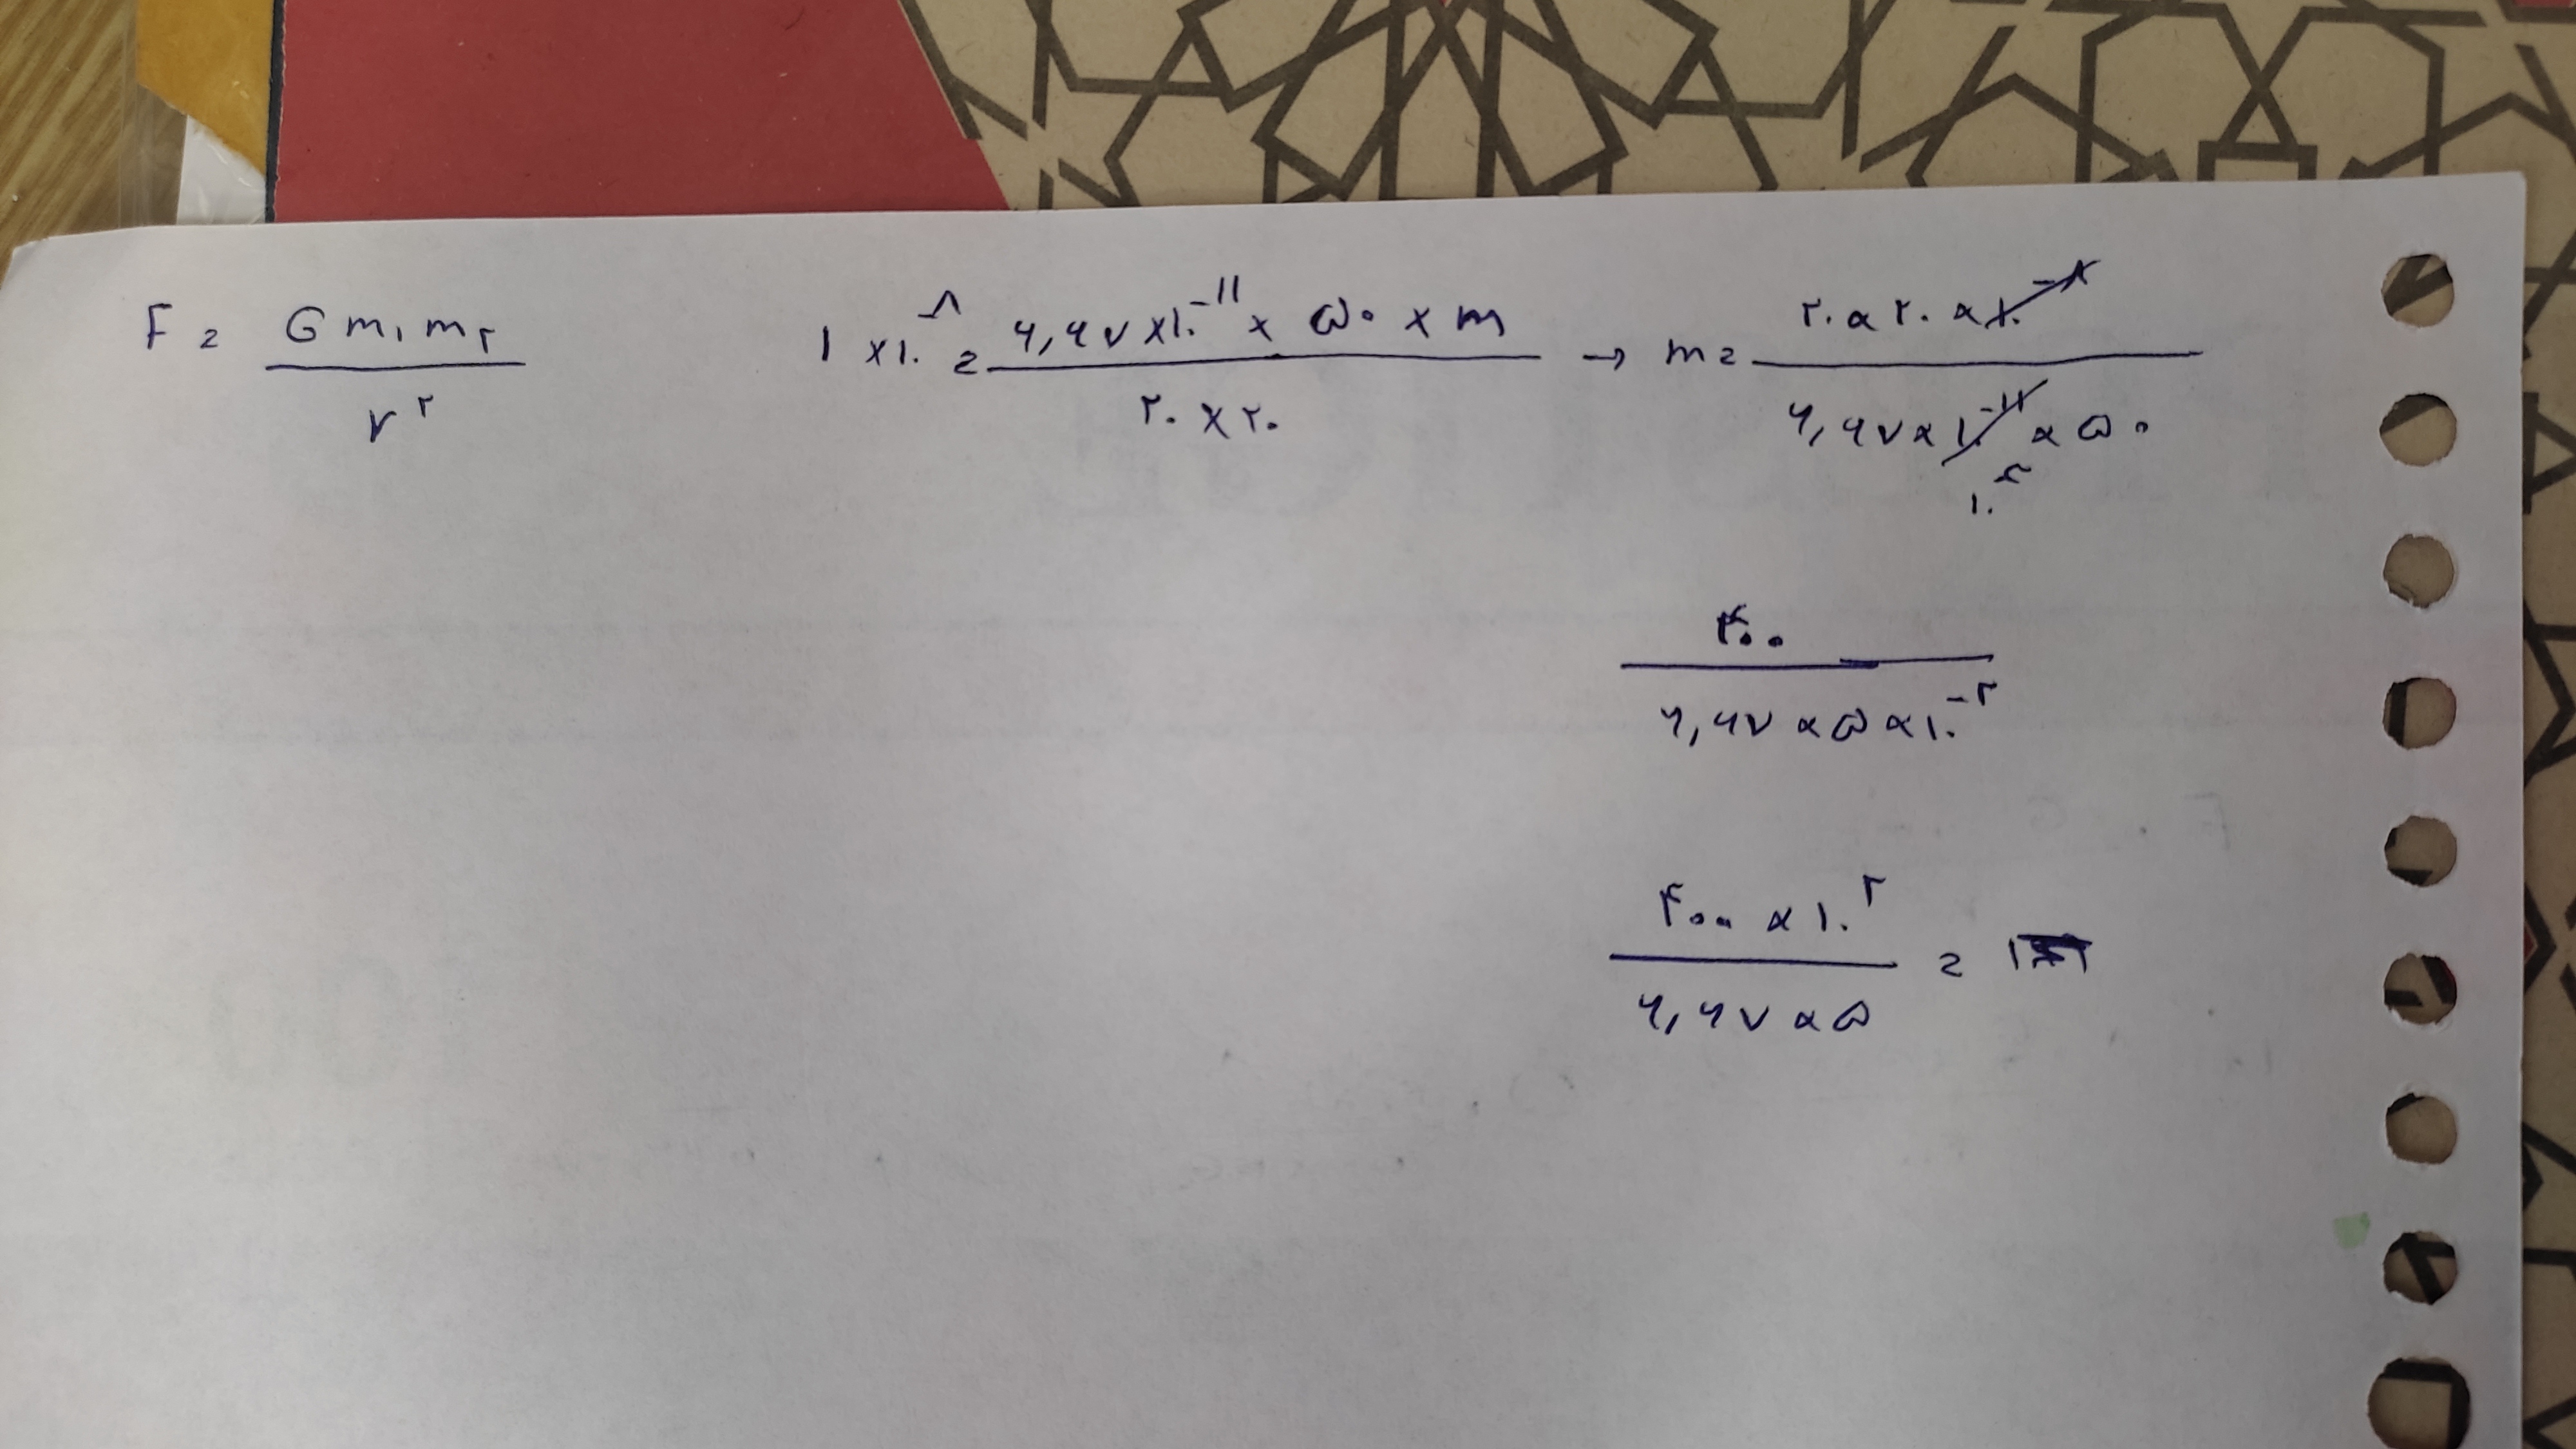 F = G m₁ m₂ / r²
۱ × ۱۰^-۸ = ۶,۶۷ × ۱۰^-۱۱ × ۵۰ × m / ۲۰ × ۲۰ → m = ۲۰ × ۲۰ × ۱۰^-۸ / ۶,۶۷ × ۱۰^-۱۱ × ۵۰
۴۰۰ / ۶,۶۷ × ۵ × ۱۰^-۲
۴۰۰ × ۱۰^۲ / ۶,۶۷ × ۵ =